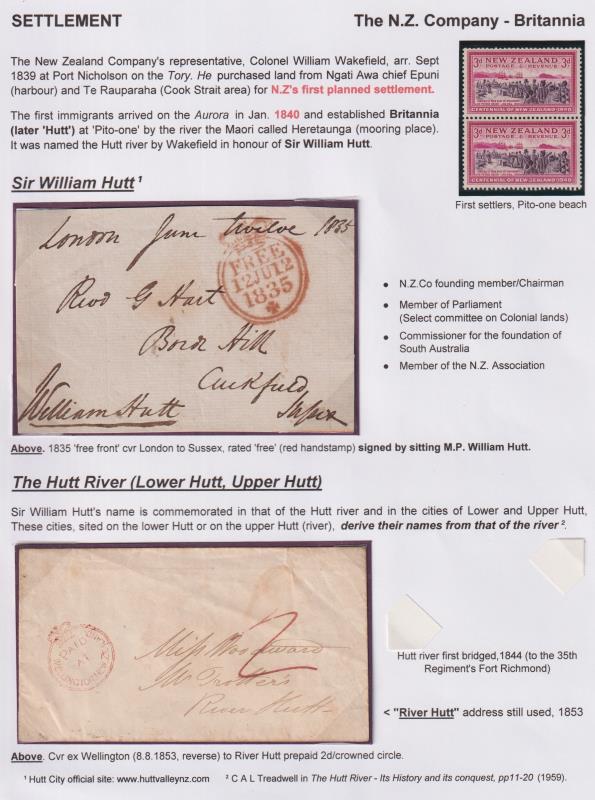 SETTLEMENT
The N.Z. Company - Britannia
The New Zealand Company's representative, Colonel William Wakefield, arr. Sept
1839 at Port Nicholson on the Tory. He purchased land from Ngati Awa chief Epuni
(harbour) and Te Rauparaha (Cook Strait area) for N.Z's first planned settlement.
The first immigrants arrived on the Aurora in Jan. 1840 and established Britannia
(later 'Hutt') at 'Pito-one' by the river the Maori called Heretaunga (mooring place).
It was named the Hutt river by Wakefield in honour of Sir William Hutt.
3d NEW ZEALAND 3d
POSTAGE & REVENUE
CENTENNIAL OF NEW ZEALAND 1940
3d NEW ZEALAND 3d
POSTAGE & REVENUE
CENTENNIAL OF NEW ZEALAND 1940
First settlers, Pito-one beach
Sir William Hutt ¹
London June twelve 1835
FREE
12JU12
1835
Revd G Hart
Borde Hill
Cuckfield
Sussex
William Hutt
• N.Z.Co founding member/Chairman
• Member of Parliament
(Select committee on Colonial lands)
• Commissioner for the foundation of
South Australia
• Member of the N.Z. Association
Above. 1835 'free front' cvr London to Sussex, rated 'free' (red handstamp) signed by sitting M.P. William Hutt.
The Hutt River (Lower Hutt, Upper Hutt)
Sir William Hutt's name is commemorated in that of the Hutt river and in the cities of Lower and Upper Hutt,
These cities, sited on the lower Hutt or on the upper Hutt (river), derive their names from that of the river ².
PAID
AT
2
Miss Woodward
Mr Trotters
River Hutt
Hutt river first bridged,1844 (to the 35th
Regiment's Fort Richmond)
< "River Hutt" address still used, 1853
Above. Cvr ex Wellington (8.8.1853, reverse) to River Hutt prepaid 2d/crowned circle.
¹ Hutt City official site: www.huttvalleynz.com ² C A L Treadwell in The Hutt River - Its History and its conquest, pp11-20 (1959).